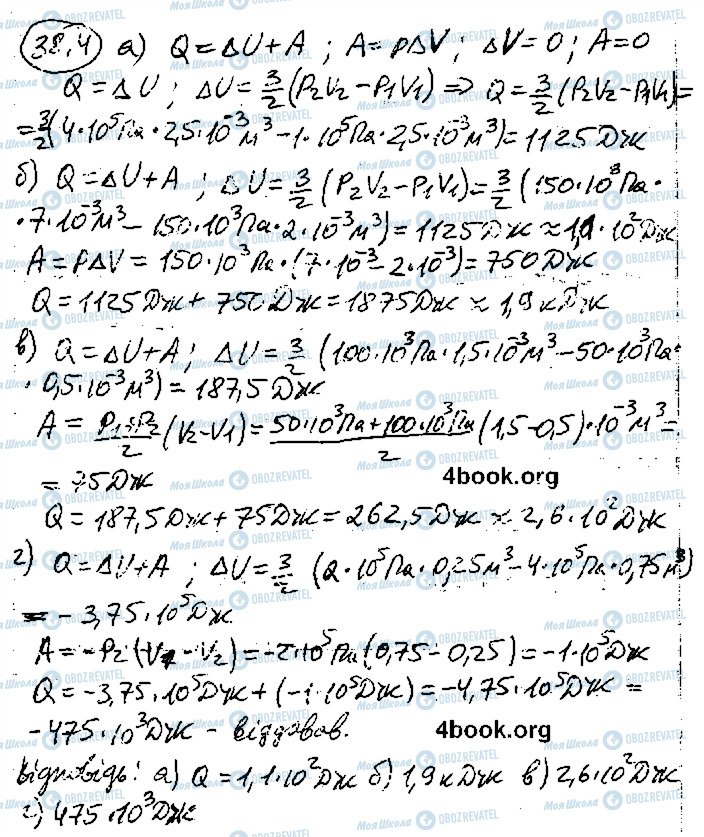 38.4 а) Q = ΔU + A ; A = pΔV ; ΔV = 0 ; A = 0
Q = ΔU ; ΔU = 3/2 (P₂V₂ – P₁V₁) => Q = 3/2 (P₂V₂ – P₁V₁) =
= 3/2 (4·10⁵Па · 2,5·10⁻³м³ – 1·10⁵Па · 2,5·10⁻³м³) = 1125 Дж
б) Q = ΔU + A ; ΔU = 3/2 (P₂V₂ – P₁V₁) = 3/2 (150·10³Па ·
· 7·10⁻³м³ – 150·10³Па · 2·10⁻³м³) = 1125 Дж ≈ 1,1·10² Дж
A = PΔV = 150·10³Па · (7·10⁻³ – 2·10⁻³) = 750 Дж
Q = 1125 Дж + 750 Дж = 1875 Дж ≈ 1,9 кДж
в) Q = ΔU + A ; ΔU = 3/2 (100·10³Па · 1,5·10⁻³м³ – 50·10³Па ·
· 0,5·10⁻³м³) = 187,5 Дж
A = (P₁+P₂)/2 (V₂ – V₁) = (50·10³Па + 100·10³Па)/2 (1,5 – 0,5)·10⁻³м³ =
= 75 Дж
4book.org
Q = 187,5 Дж + 75 Дж = 262,5 Дж ≈ 2,6·10² Дж
г) Q = ΔU + A ; ΔU = 3/2 (2·10⁵Па · 0,25м³ – 4·10⁵Па · 0,75м³)
= – 3,75·10⁵ Дж
A = – P₂ (V₁ – V₂) = –2·10⁵Па (0,75 – 0,25) = –1·10⁵ Дж
Q = –3,75·10⁵ Дж + (–1·10⁵ Дж) = –4,75·10⁵ Дж =
–475·10³ Дж – віддавав.
4book.org
Відповідь: а) Q = 1,1·10² Дж б) 1,9 кДж в) 2,6·10² Дж
г) 475·10³ Дж